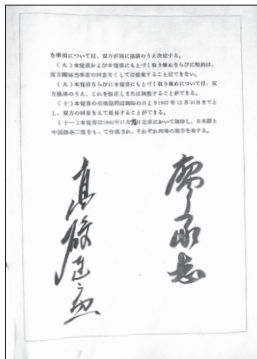 な事項については、双方が別に協議のうえ決定する。
(八)本覚書および本覚書にもとづく取り極めならびに契約は、
双方関係当事者の同意なくしては廃棄することはできない。
(九)本覚書ならびに本覚書にもとづく取り極めについては、双
方協議のうえ、これを修正しまたは調整することができる。
(十)本覚書の有効期間は調印の日より1967年12月31日までと
し、双方の同意をえて延長することができる。
(十一)本覚書は1962年11月9日北京において調印し、日本語と
中国語各二部をもって作成され、それぞれ同等の効力を有する。
高碕達之助
廖承志